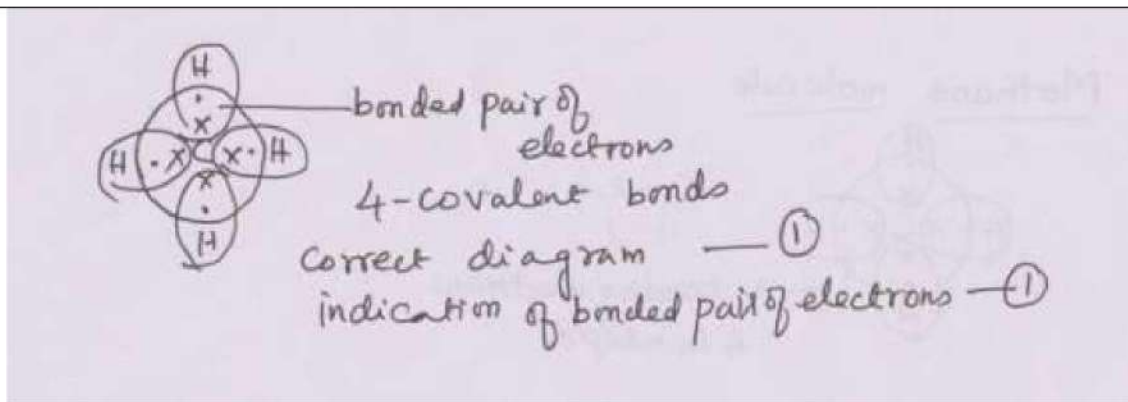 H
H · X C X · H
H
bonded pair of
electrons
4-covalent bonds
correct diagram — ①
indication of bonded pair of electrons — ①